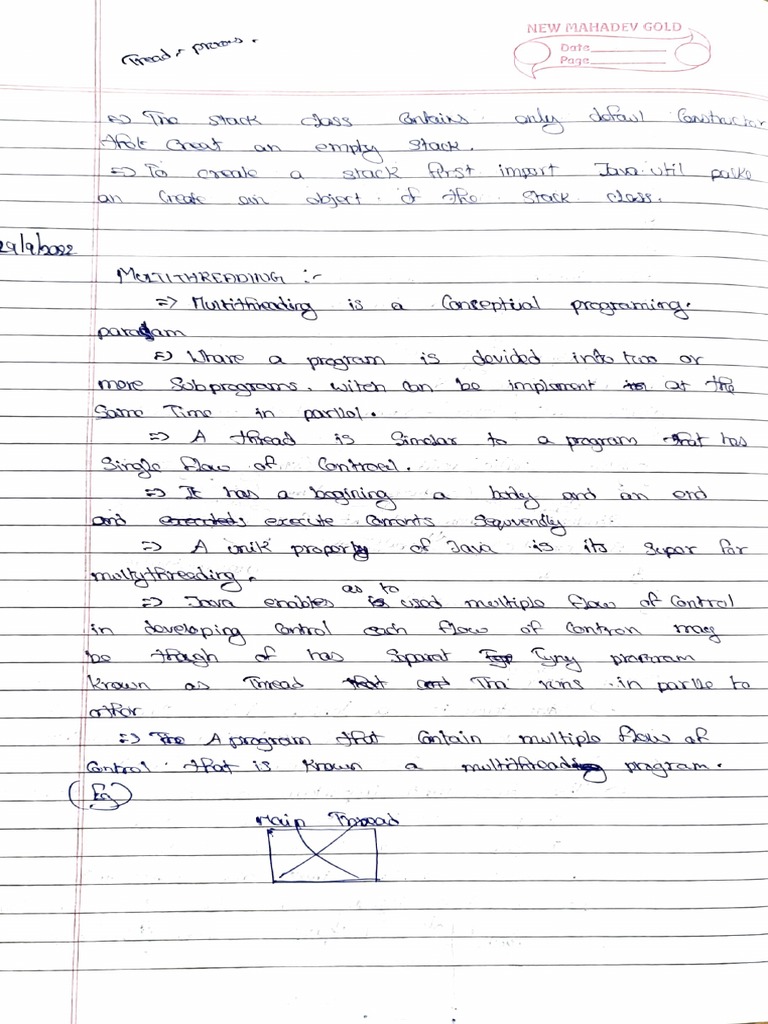 NEW MAHADEV GOLD
Date
Page
Tread, proces.
=> The stack class Contains only defaul Constructor
that Creat an empty stack.
=> To create a stack first import Java util packe
an Create an object of the stack class.
29/9/2022
MULTITHREADING :-
=> Multithreading is a Conseptual programing.
paradam
=> Whare a program is devided into two or
more Subprograms. witch can be implement at the
Same Time in parllel.
=> A thread is Simelar to a program that has
Single flow of Controel.
=> It has a begining a body and an end
and execute Comonts Sequvendly
=> A unik property of Java is its Supor for
multythreading.
as to
=> Java enables used multiple flow of Control
in developing Control each flow of Contron may
be though of has Sparat Tyny program
known as Thread The runs in parlle to
othor
=> A program that Contain multiple flow of
Control that is known a multithreading program.
(Eg)
Main Thread